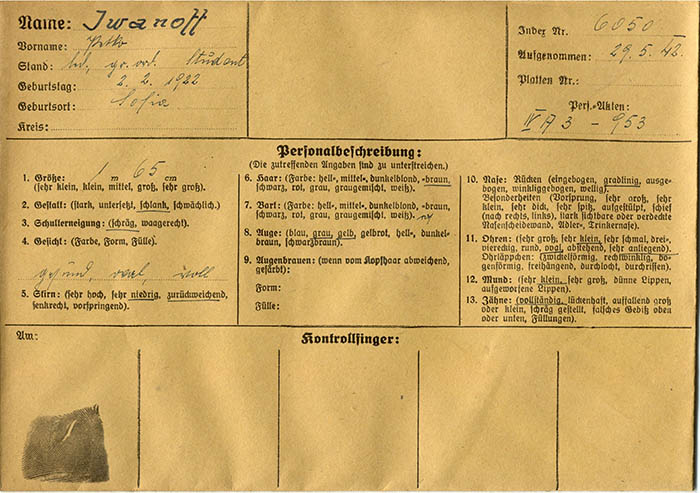 Name: Iwanoff
Vorname: Petko
Stand: led, gr. ort. Student
Geburtstag: 2. 2. 1922
Geburtsort: Sofia
Kreis:
Index Nr. 6050
Aufgenommen: 29.5.42.
Platten Nr.:
Pers.-Akten:
IV A 3 - 953
Personalbeschreibung:
(Die zutreffenden Angaben sind zu unterstreichen.)
1. Größe: 1 m 65 cm
(sehr klein, klein, mittel, groß, sehr groß).
2. Gestalt: (stark, untersetzt, schlank, schwächlich.)
3. Schulterneigung: (schräg, waagerecht.)
4. Gesicht: (Farbe, Form, Fülle).
gesund, oval, voll
5. Stirn: (sehr hoch, sehr niedrig, zurückweichend,
senkrecht, vorspringend).
6. Haar: (Farbe: hell-, mittel-, dunkelblond, -braun,
schwarz, rot, grau, graugemischt, weiß).
7. Bart: (Farbe: hell-, mittel-, dunkelblond, -braun,
schwarz, rot, grau, graugemischt, weiß).
8. Auge: (blau, grau, gelb, gelbrot, hell-, dunkel-
braun, schwarzbraun).
9. Augenbrauen: (wenn vom Kopfhaar abweichend,
gefärbt):
Form:
Fülle:
10. Nase: Rücken (eingebogen, gradlinig, ausge-
bogen, winkliggebogen, wellig).
Besonderheiten (Vorsprung, sehr groß, sehr
klein, sehr dick, sehr spitz, aufgestülpt, schief
(nach rechts, links), stark sichtbare oder verdeckte
Nasenscheidewand, Adler-, Trinkernase).
11. Ohren: (sehr groß, sehr klein, sehr schmal, drei-,
viereckig, rund, oval, abstehend, sehr anliegend).
Ohrläppchen: (zwickelförmig, rechtwinklig, bo-
genförmig, freihängend, durchlocht, durchrissen).
12. Mund: (sehr klein, sehr groß, dünne Lippen,
aufgeworfene Lippen).
13. Zähne: (vollständig, lückenhaft, auffallend groß
oder klein, schräg gestellt, falsches Gebiß oben
oder unten, Füllungen).
Am:
Kontrollfinger: